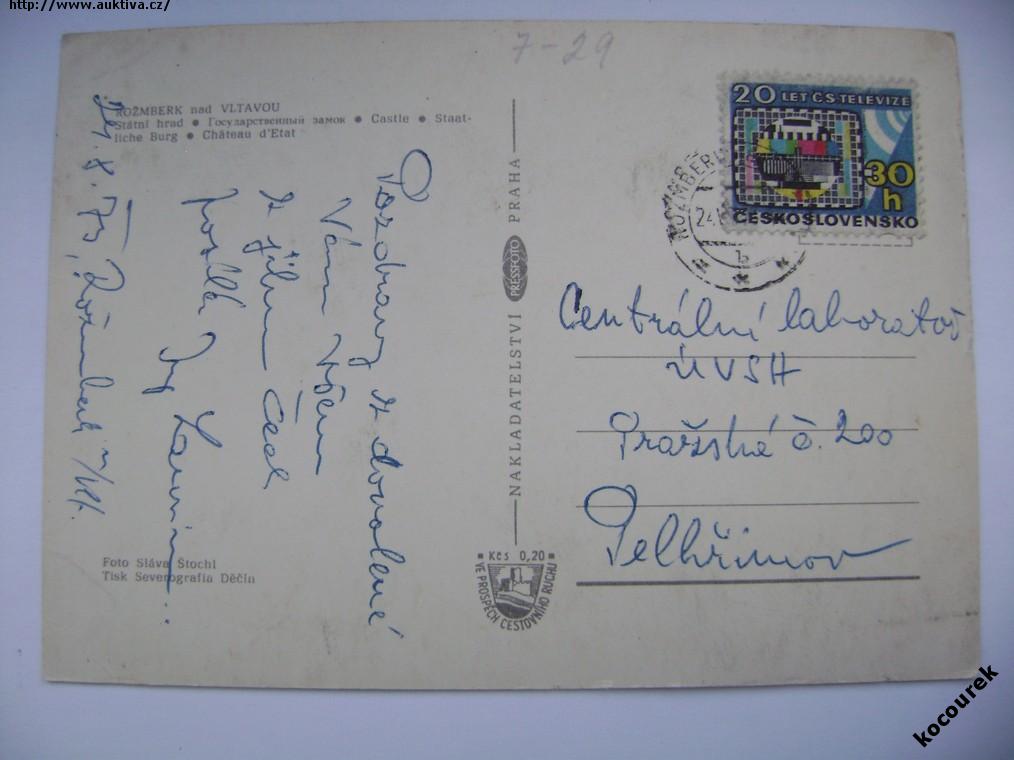 http://www.auktiva.cz/
7-29
ROŽMBERK nad VLTAVOU
Státní hrad ● Государственный замок ● Castle ● Staat-
liche Burg ● Château d'Etat
Pozdravy z dovolené
Vám všem
z jižních Čech
posílá
24. 8. 73, Rožmberk n/Vlt.
Foto Sláva Štochl
Tisk Severografia Děčín
NAKLADATELSTVÍ PRESSFOTO PRAHA
Kčs 0,20
VE PROSPĚCH CESTOVNÍHO RUCHU
20 LET ČS TELEVIZE
30 h
ČESKOSLOVENSKO
ROŽMBERK
24
b
Centrální laboratoř
ÚVSH
Pražská č. 200
Pelhřimov
kocourek